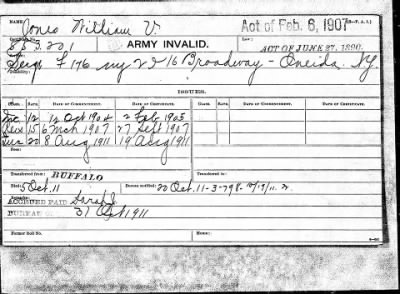 NAME: Jones William V. Act of Feb. 6, 1907 (W. & I.)
Certificate No.
853.201 ARMY INVALID. Law: ACT OF JUNE 27, 1890.
Serg F 176 ny 22 16 Broadway - Oneida. N.Y.
ISSUES.
Class. Rate. Date of Commencement. Date of Certificate. Class. Rate. Date of Commencement. Date of Certificate.
Inc 12 12 Oct 1904 2 Feb 1905
15 6 Mch 1907 27 Sept 1907
20 8 Aug 1911 19 Aug 1911
From:
Transferred from: BUFFALO Transferred to:
Died: 5 Oct. 11 Bureau notified: 20 Oct. 11-3-798-10/19/11.
Remarks:
ACCRUED PAID Sarah J.
BUREAU 31 Oct 1911
Former Roll No. Home: